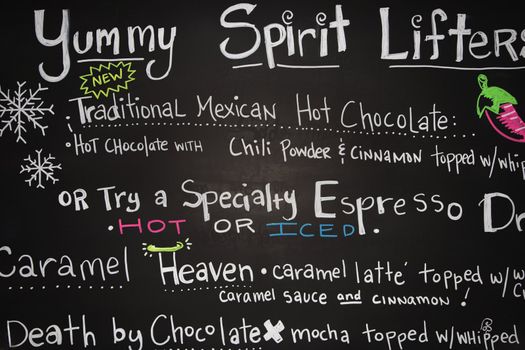 Yummy Spirit Lifters
NEW
Traditional Mexican Hot Chocolate:
• HOT CHOCOLATE WITH CHILI POWDER & CINNAMON topped w/whip
OR Try a Specialty Espresso Dr
• HOT OR ICED.
Caramel Heaven • caramel latte' topped w/
CARAMEL SAUCE AND CINNAMON!
Death by Chocolate mocha topped w/whipped